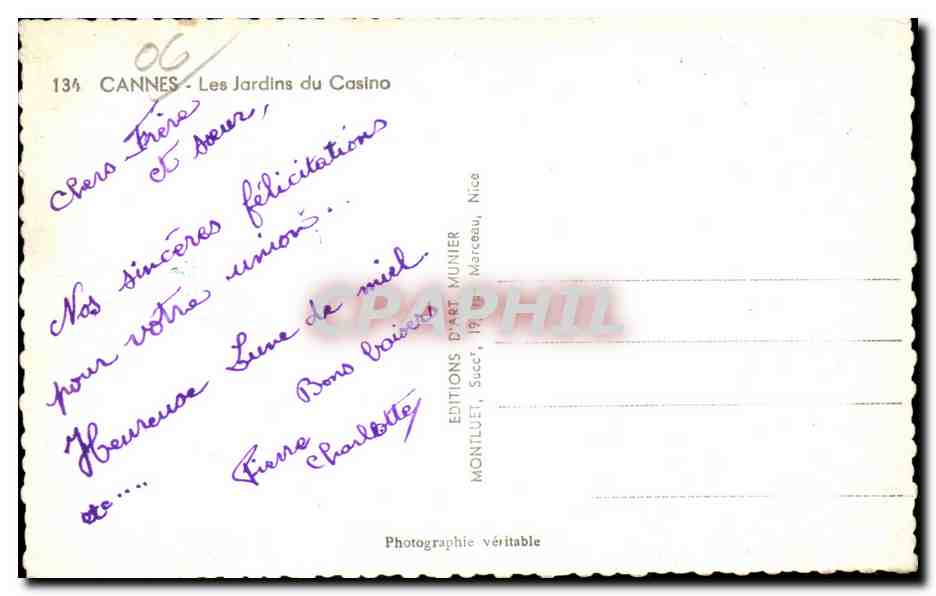 06
134 CANNES - Les Jardins du Casino
Chers Frère
et sœur,
Nos sincères félicitations
pour votre union...
Heureuse Lune de miel.
etc....
Bons baisers
Pierre
Charlotte
EDITIONS D'ART MUNIER
MONTLUET, Succr, 19, Marceau, Nice
CPAPHIL
Photographie véritable